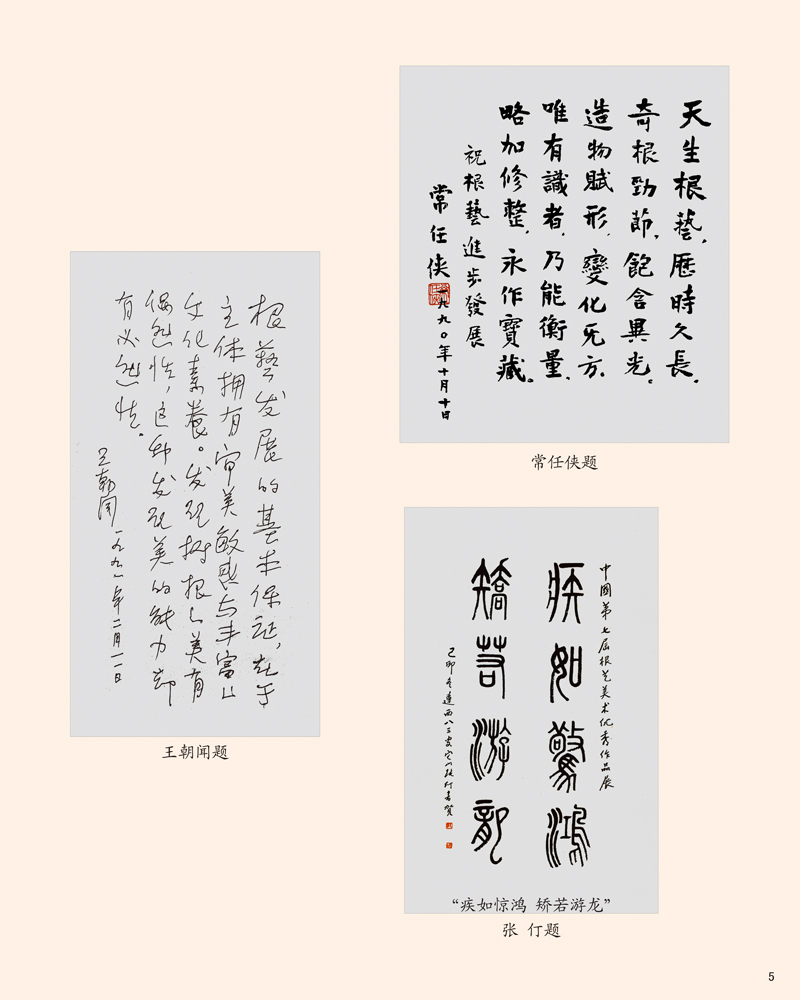 根藝发展的基本保证,在于
主体拥有审美敏感与丰富的
文化素養。发现树根之美有
偶然性,这种发现美的能力却
有必然性。
王朝聞 一九九一年二月一一日
王朝闻题
天生根藝,歷時久長,
奇根勁節,飽含異光。
造物賦形,變化无方.
唯有識者,乃能衡量,
略加修整,永作寶藏。
祝根藝進步發展
常任俠 一九九〇年十月十日
常任侠题
中國第七届根艺美术优秀作品展
疾如驚鴻
矯若游龍
己卯冬 西八三叟它山張仃書賀
“疾如惊鸿 矫若游龙”
张 仃题
5